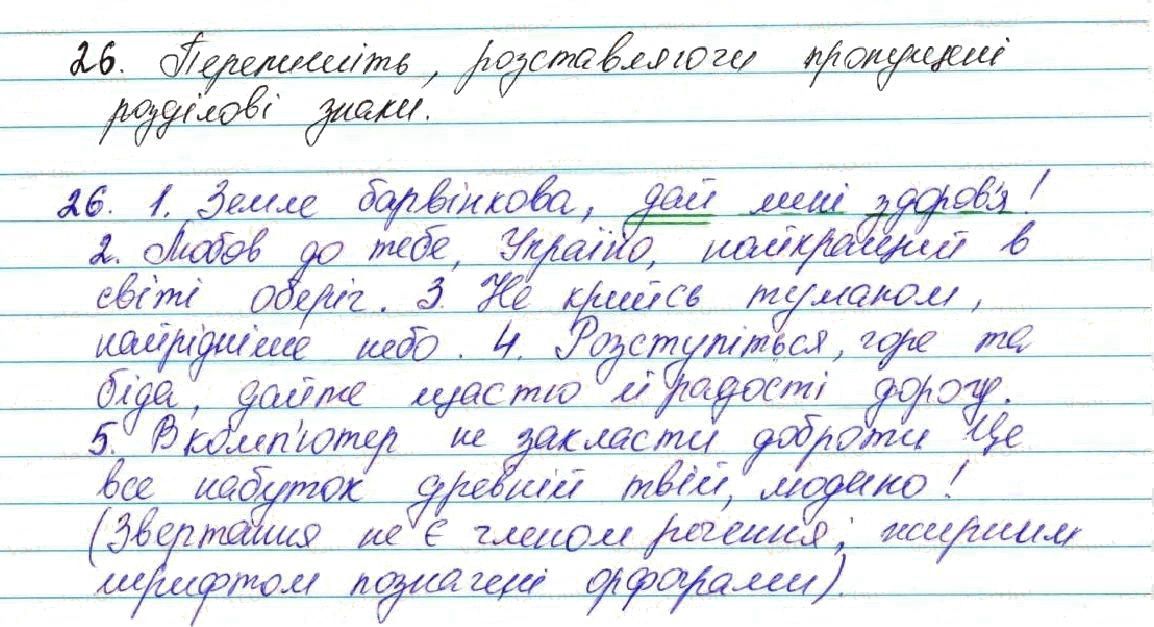 26. Перепишіть, розставляючи пропущені
розділові знаки.
26. 1. Земле барвінкова, дай мені здоров'я!
2. Любов до тебе, Україно, найкращий в
світі оберіг. 3. Не крийсь туманом,
найрідніше небо. 4. Розступіться, горе та
біда, дайте щастю й радості дорогу.
5. В комп'ютер не закласти доброти. Це
все набуток древній твій, людино!
(Звертання не є членом речення; жирним
шрифтом позначені орфограми).